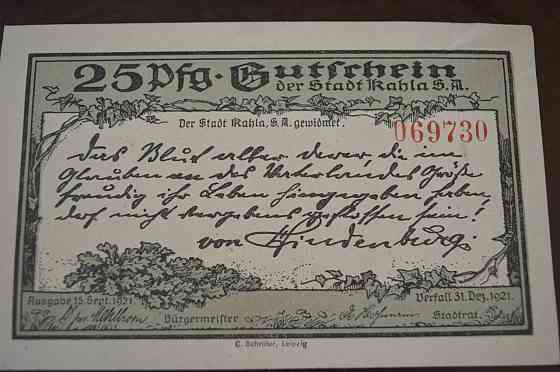 25 Pfg. Gutschein
der Stadt Kahla S.A.
Der Stadt Kahla, S.A. gewidmet.
069730
Das Blut aller derer, die im
Glauben an des Vaterlandes Größe
freudig ihr Leben hingegeben haben,
darf nicht vergebens geflossen sein!
von Hindenburg.
Ausgabe 15. Sept. 1921.
Verfall 31. Dez. 1921.
Bürgermeister
Stadtrat.
C. Schröter, Leipzig